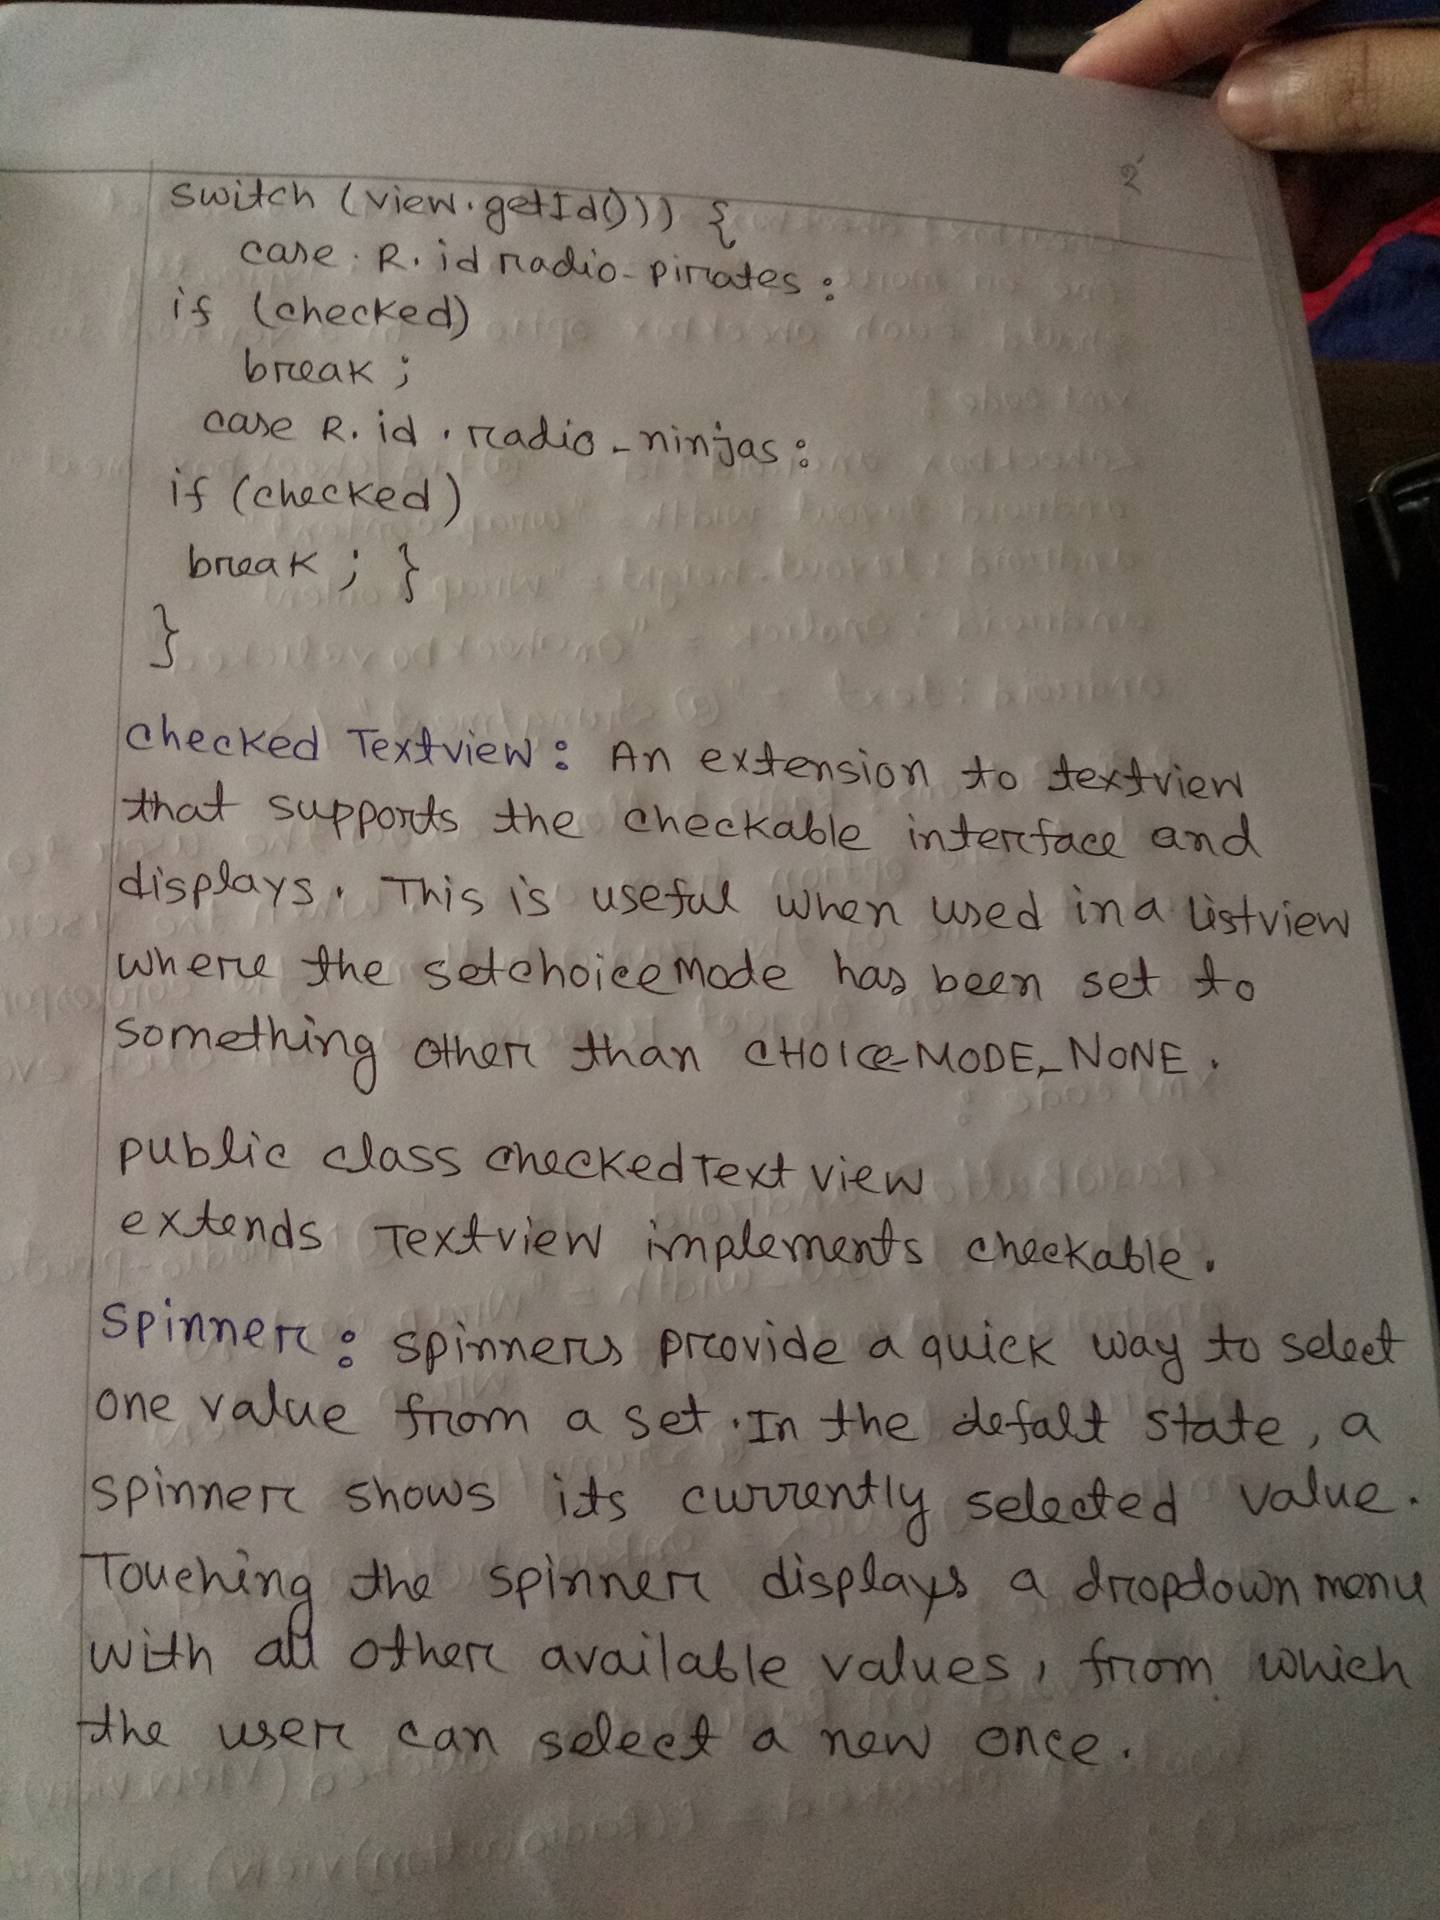 2
switch (view.getId())) {
case. R. id radio-pirates:
if (checked)
break ;
case R. id . radio - ninjas:
if (checked)
break ; }
}
Checked Textview: An extension to textview
that supports the checkable interface and
displays. This is useful when used in a listview
where the setchoiceMode has been set to
something other than CHOICE-MODE_NONE.
public class checkedText view
extends Textview implements checkable.
Spinner: spinners provide a quick way to select
one value from a set. In the defalt state, a
spinner shows its currently selected value.
Touching the spinner displays a dropdown menu
with all other available values, from which
the user can select a new once.